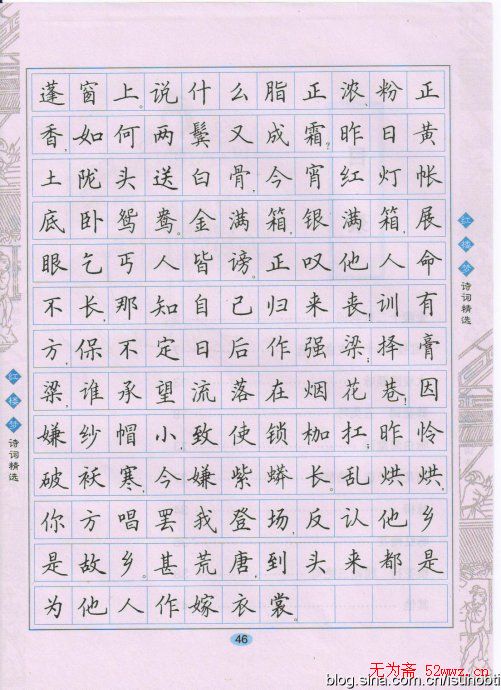 蓬窗上。说什么脂正浓、粉正
香,如何两鬓又成霜?昨日黄
土陇头送白骨,今宵红灯帐
底卧鸳鸯。金满箱,银满箱,展
眼乞丐人皆谤。正叹他人命
不长,那知自己归来丧!训有
方,保不定日后作强梁;择膏
粱,谁承望流落在烟花巷!因
嫌纱帽小,致使锁枷扛;昨怜
破袄寒,今嫌紫蟒长。乱烘烘,
你方唱罢我登场,反认他乡
是故乡。甚荒唐,到头来都是
为他人作嫁衣裳
46
红楼梦诗词精选
红楼梦诗词精选
无为斋 52wwz.cn
blog.sina.com.cn/isunobti